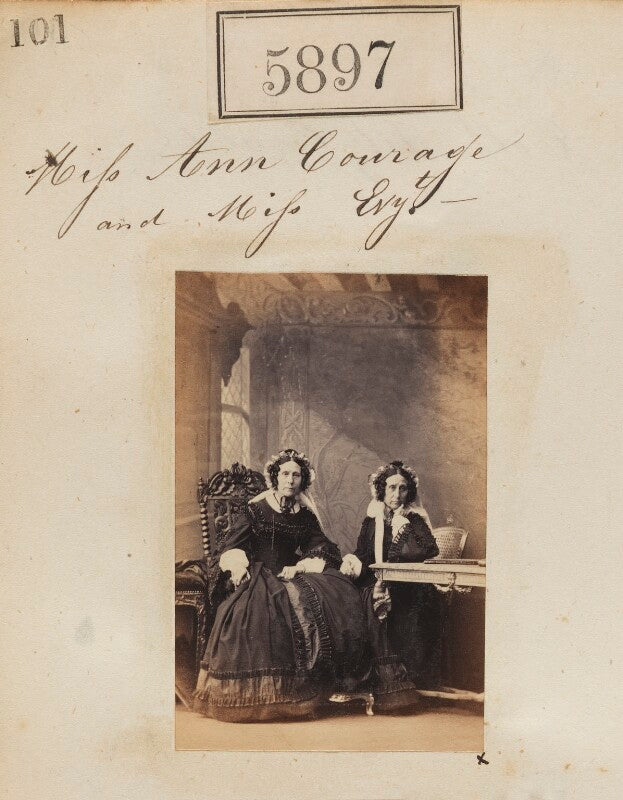 101
5897
Miss Ann Courage
and Miss Evyt —
x